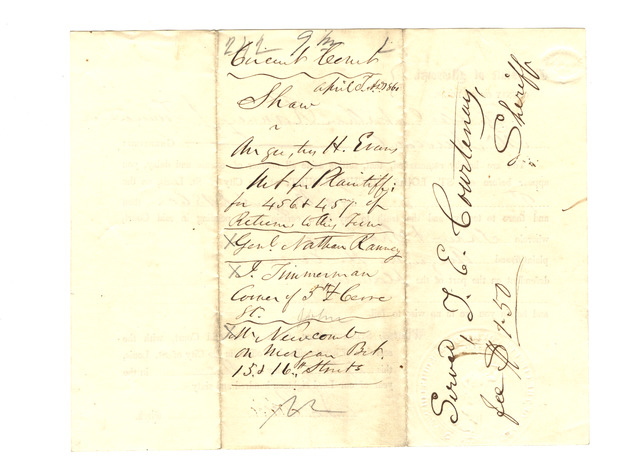 Circuit Court
April T. 1860
Shaw
v
H. Evans
for Plaintiff;
for 456 & 457 if
Return to this Term
X Genl. Nathan Ranney
X J. Timmerman
Corner of 5th & Cerre
St.
X Mr Newcomb
on Morgan Bet.
15 & 16th Streets
Served
T. E. Courtenay,
Sheriff
fee $1.50